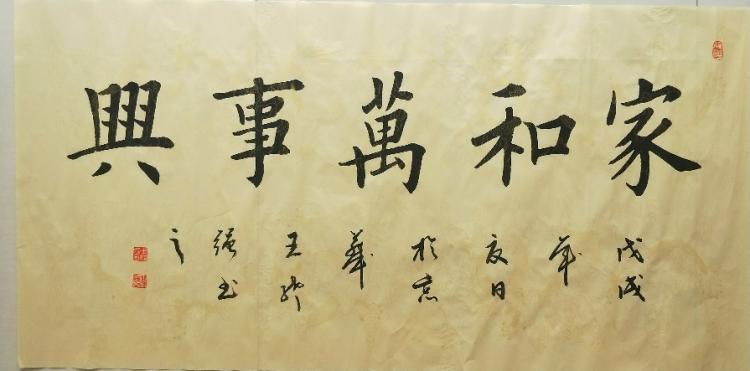 家和萬事興
戊戌
年
夏日
於京
華
王
强书
之